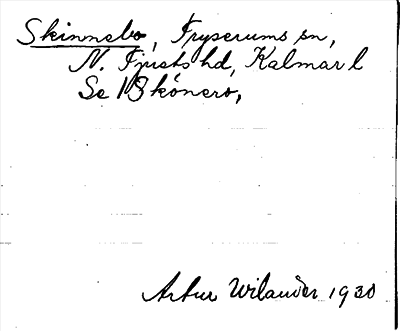 Skinnebo, Fryserums sn,
N. Tjusts hd, Kalmar l
Se 1 Skönero,
Artur Wilander 1930